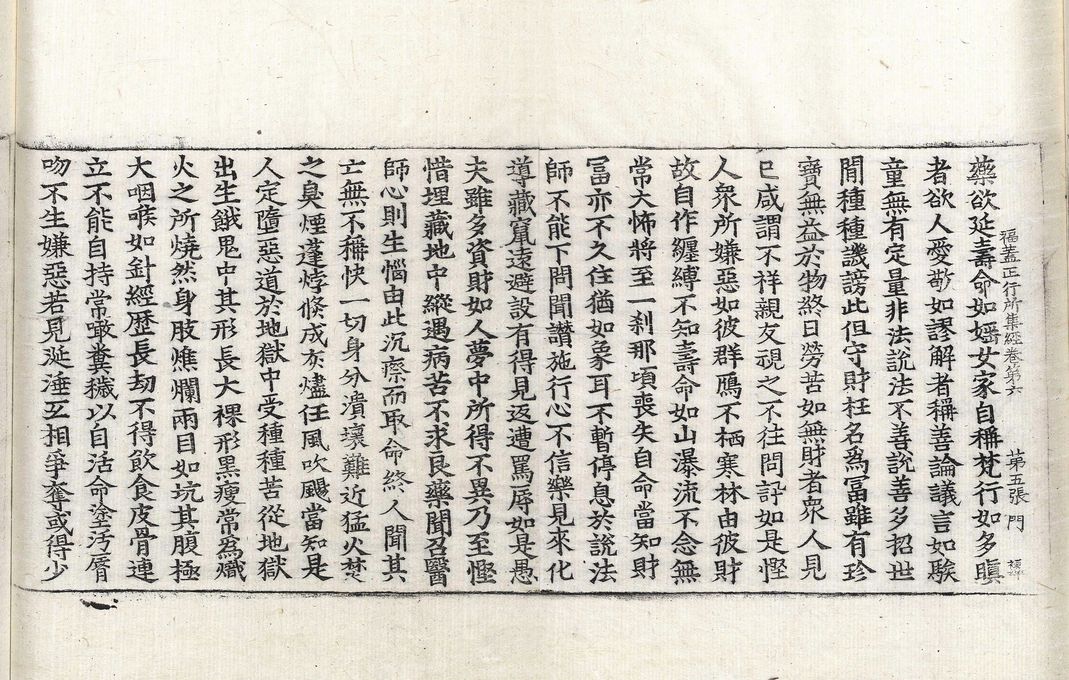 福蓋正行所集經卷第六 第五張 門
藥欲延壽命如婬女家自稱梵行如多瞋
者欲人愛敬如謬解者稱善論議言如騃
童無有定量非法說法不善說善多招世
閒種種譏謗此但守財枉名爲冨雖有珍
寶無益於物終日勞苦如無財者衆人見
已咸謂不祥親友視之不往問訊如是慳
人衆所嫌惡如彼群鴈不栖寒林由彼財
故自作纏縛不知壽命如山瀑流不念無
常大怖將至一刹那頃喪失自命當知財
冨亦不久住猶如象耳不暫停息於說法
師不能下問聞讚施行心不信樂見來化
導藏竄遠避設有得見返遭罵辱如是愚
夫雖多資財如人夢中所得不異乃至慳
惜埋藏地中縱遇病苦不求良藥聞召醫
師心則生惱由此沉瘵而取命終人聞其
亡無不稱快一切身分潰壞難近猛火焚
之臭煙蓬㶿倐成灰燼任風吹颺當知是
人定墮惡道於地獄中受種種苦從地獄
出生餓鬼中其形長大裸形黑瘦常爲熾
火之所燒然身肢燋爛兩目如坑其腹極
大咽喉如針經歷長劫不得飮食皮骨連
立不能自持常噉糞穢以自活命塗污脣
吻不生嫌惡若見涎涶互相爭奪或得少